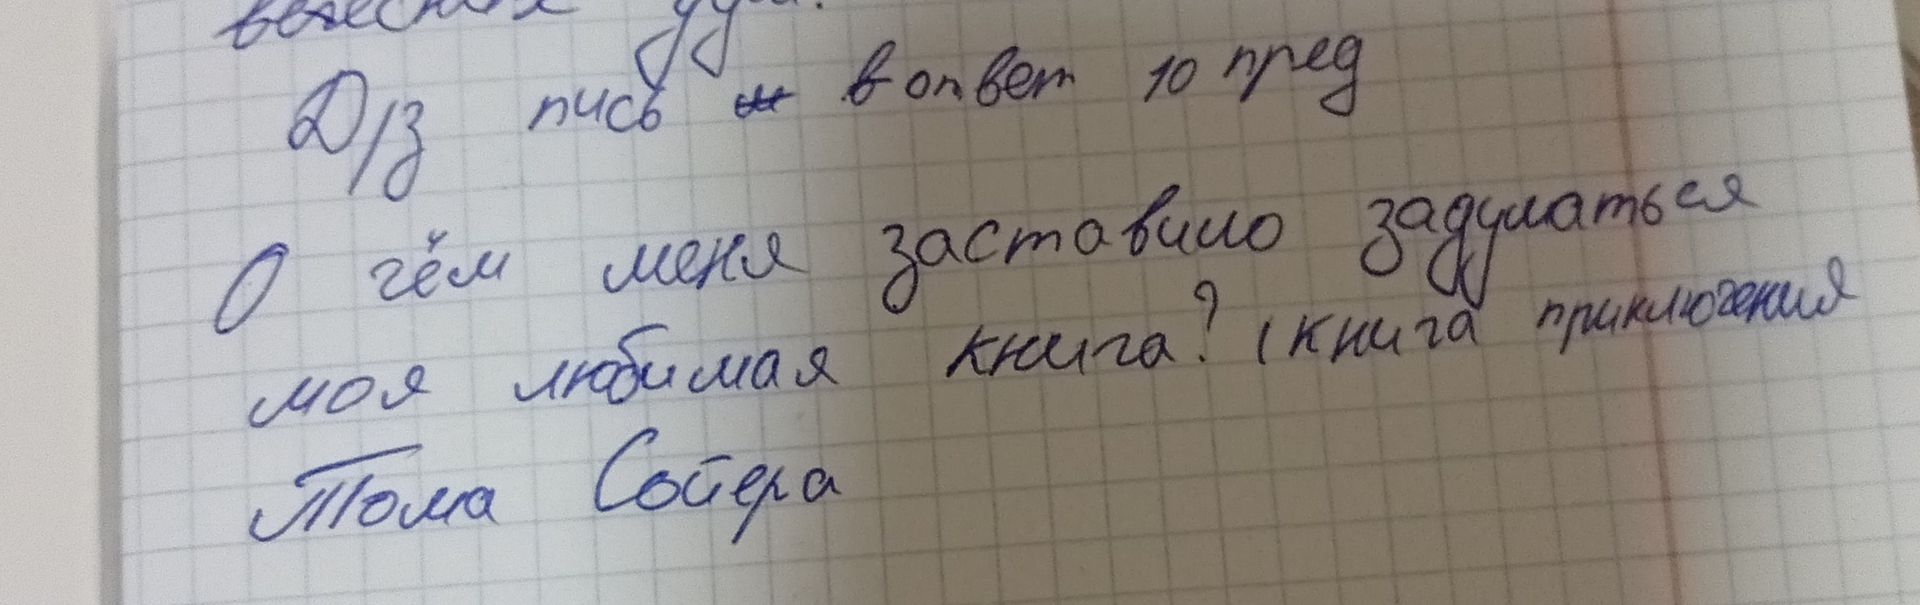 Д/з пись в ответ 10 пред
О чём меня заставило задуматься
моя любимая книга? (книга приключения
Тома Сойера